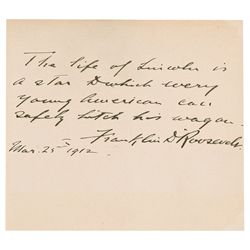 The life of Lincoln is
a star to which every
young American can
safely hitch his wagon.
Franklin D Roosevelt.
Mar. 25th 1912.